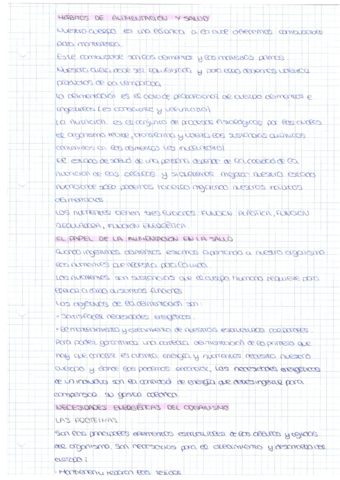 HÁBITOS DE ALIMENTACIÓN Y SALUD
Nuestro cuerpo es una máquina a la que debemos combustible
para mantenerla.
Este combustible son los alimentos y las materias primas.
Nuestra dieta debe ser equilibrada y para ello debemos
productos de la
La alimentación es el acto de proporcionar al cuerpo alimentos e
ingerirlos (es consciente y voluntario)
La nutrición es el conjunto de procesos fisiológicos por los cuales
el organismo recibe, transforma y utiliza las sustancias químicas
contenidas en los alimentos (es involuntario)
El estado de salud de una persona depende de la calidad de la
nutrición de las células y si queremos mejorar nuestro estado
nutricional solo podemos hacerlo mejorando nuestros hábitos
alimenticios.
Los nutrientes tienen tres funciones: FUNCIÓN PLÁSTICA, FUNCIÓN
REGULADORA, FUNCIÓN ENERGÉTICA.
EL PAPEL DE LA ALIMENTACIÓN EN LA SALUD
Cuando ingerimos alimentos estamos aportando a nuestro organismo
los nutrientes que necesita para
Los nutrientes son sustancias que el cuerpo humano requiere para
llevar a cabo distintas funciones
Los objetivos de la alimentación son:
- Satisfacer necesidades energéticas.
- El mantenimiento y crecimiento de nuestras estructuras corporales.
Para poder garantizar una correcta alimentación lo primero que
hay que conocer es cuánta energía y nutrientes necesita nuestro
cuerpo y dónde los podemos encontrar. Las necesidades energéticas
de un individuo son la cantidad de energía que debe ingerir para
compensar su gasto calórico.
NECESIDADES ENERGÉTICAS DEL ORGANISMO
LAS PROTEÍNAS
Son los principales elementos estructurales de las células y tejidos
del organismo. Son necesarios para el crecimiento y desarrollo del
cuerpo:
- Mantienen y reparan los tejidos